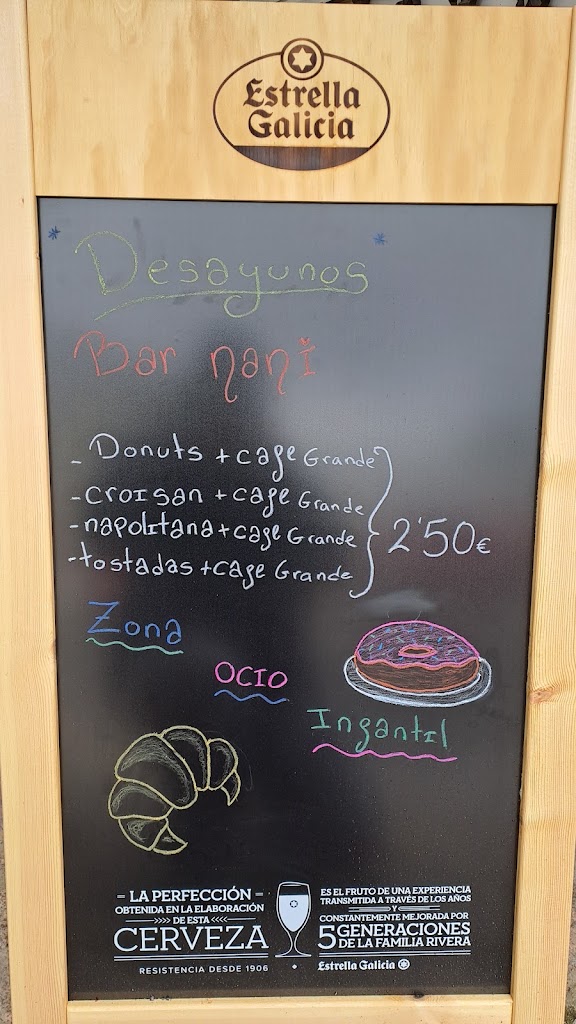 Estrella
Galicia
Desayunos
Bar nani
- Donuts + cafe Grande
- croisan + cafe Grande
- napolitana + cafe Grande
- tostadas + cafe Grande
2'50€
Zona
OCIO
Infantil
- LA PERFECCIÓN -
OBTENIDA EN LA ELABORACIÓN
>>>> DE ESTA <<<<
CERVEZA
RESISTENCIA DESDE 1906
ES EL FRUTO DE UNA EXPERIENCIA
TRANSMITIDA A TRAVÉS DE LOS AÑOS
Y
CONSTANTEMENTE MEJORADA POR
5 GENERACIONES
DE LA FAMILIA RIVERA
Estrella Galicia